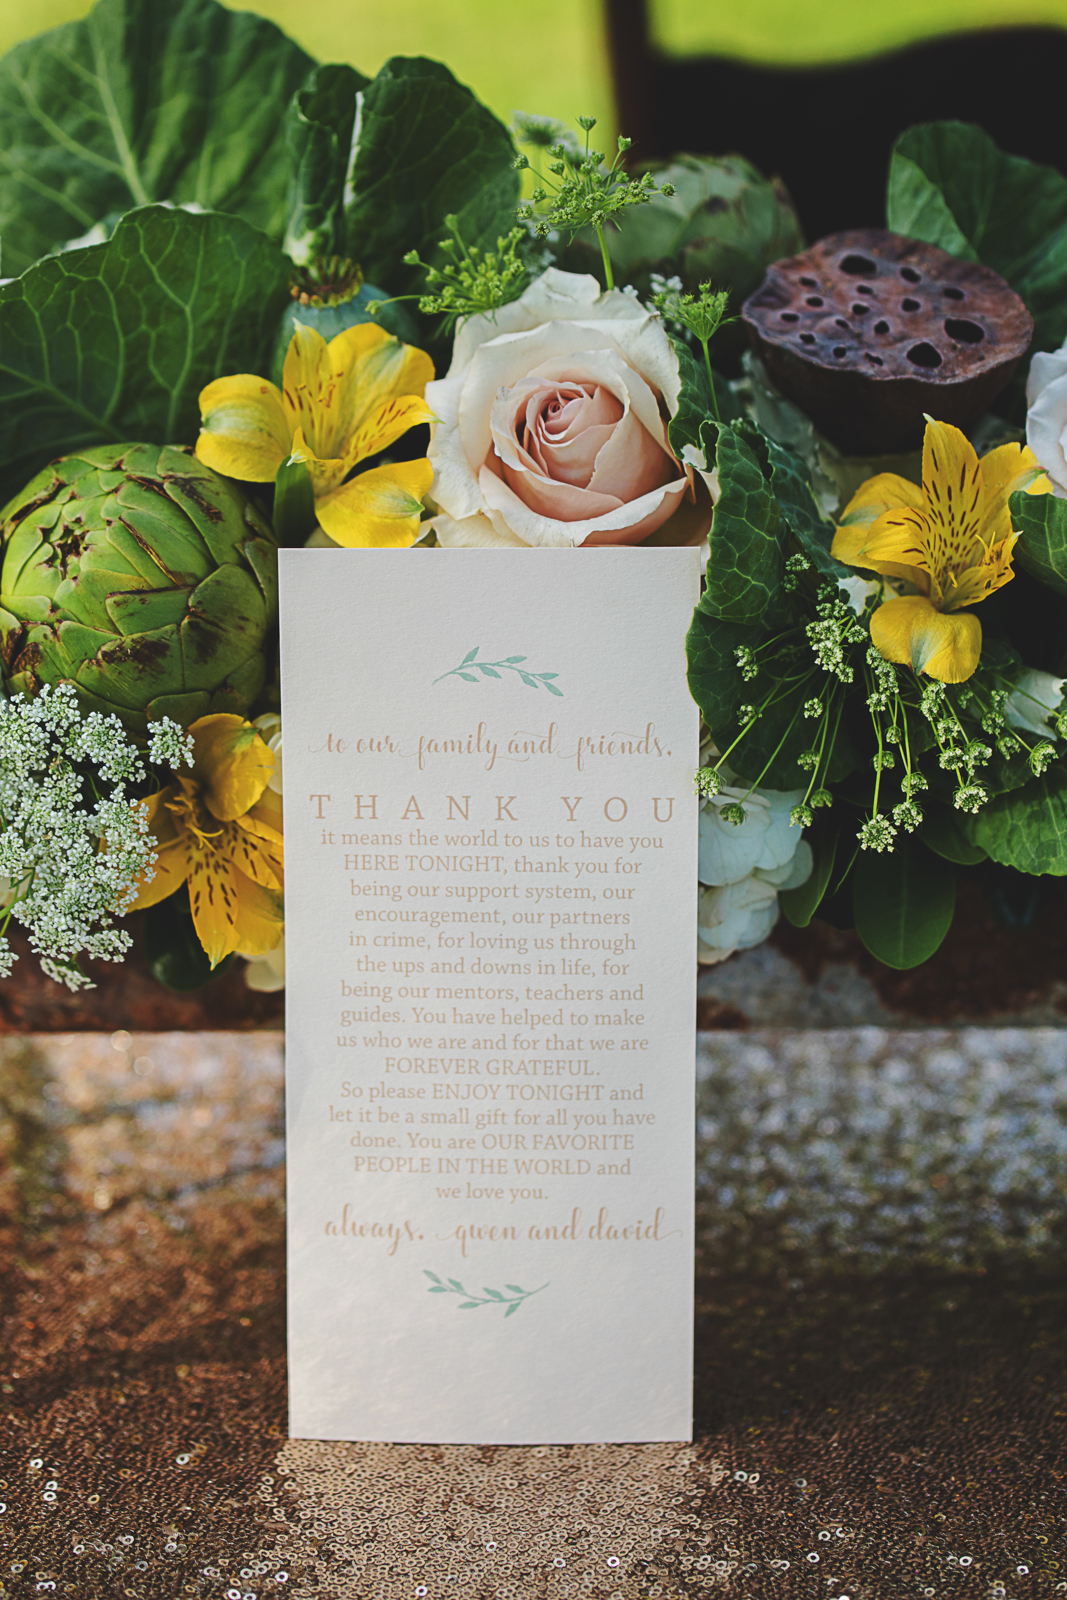 to our family and friends,
THANK YOU
it means the world to us to have you
HERE TONIGHT, thank you for
being our support system, our
encouragement, our partners
in crime, for loving us through
the ups and downs in life, for
being our mentors, teachers and
guides. You have helped to make
us who we are and for that we are
FOREVER GRATEFUL.
So please ENJOY TONIGHT and
let it be a small gift for all you have
done. You are OUR FAVORITE
PEOPLE IN THE WORLD and
we love you.
always, gwen and david